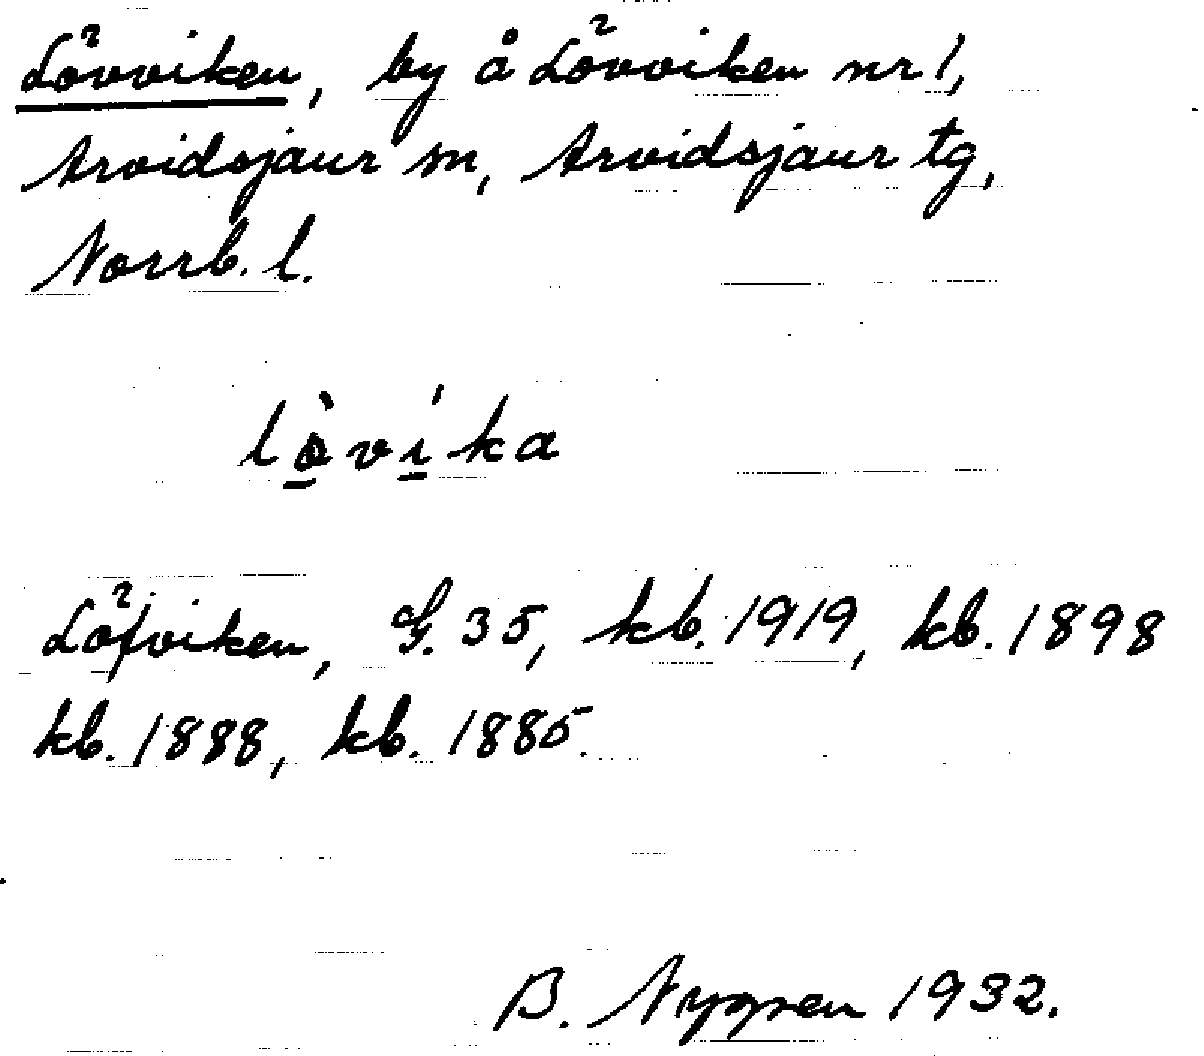 Lövviken, by å Lövviken nr 1,
Arvidsjaur sn, Arvidsjaur tg,
Norrb. l.
lò̱ví̱ka
Löfviken, G. 35, kb. 1919, kb. 1898
kb. 1888, kb. 1885.
B. Nygren 1932.